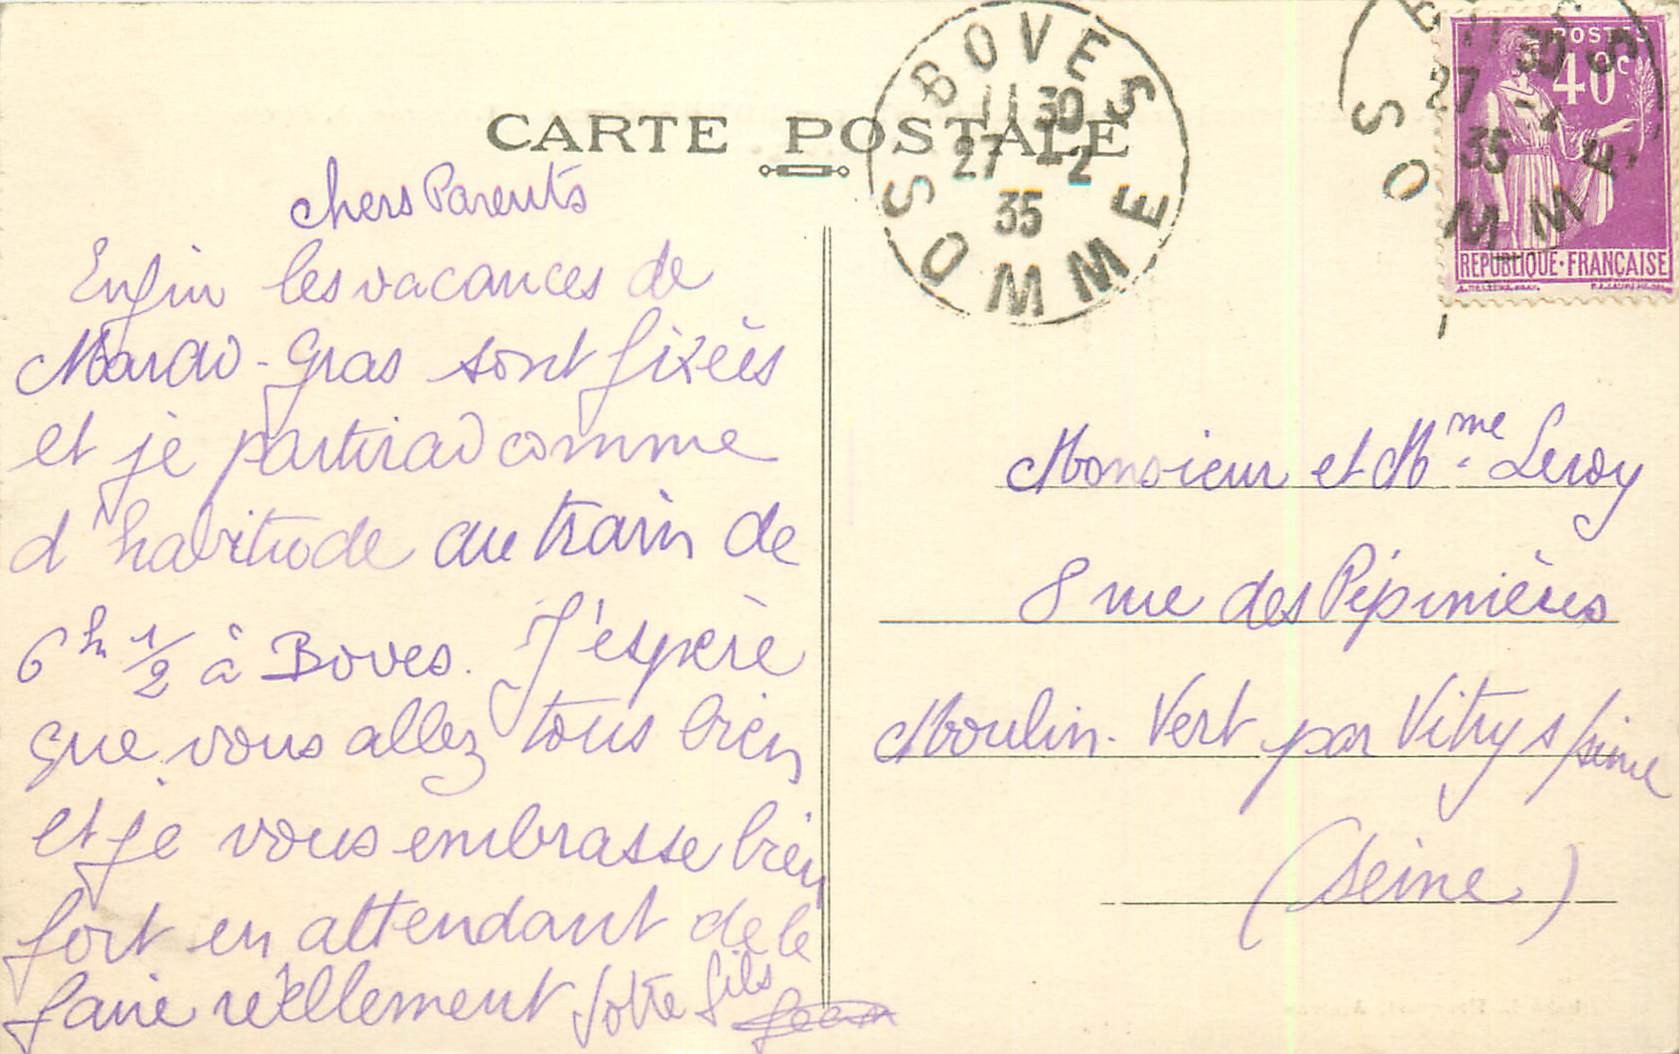 CARTE POSTALE
BOVES
11 30
27 - 2
35
SOMME
POSTES
40c
REPUBLIQUE·FRANÇAISE
chers Parents
Enfin les vacances de
Mardi-Gras sont fixées
et je partirai comme
d'habitude au train de
6h 1/2 à Boves. J'espère
que vous allez tous bien
et je vous embrasse bien
fort en attendant de le
faire réellement Votre fils
Jean
Monsieur et Mme Leroy
8 rue des Pépinières
Moulin-Vert par Vitry s/seine
(Seine)